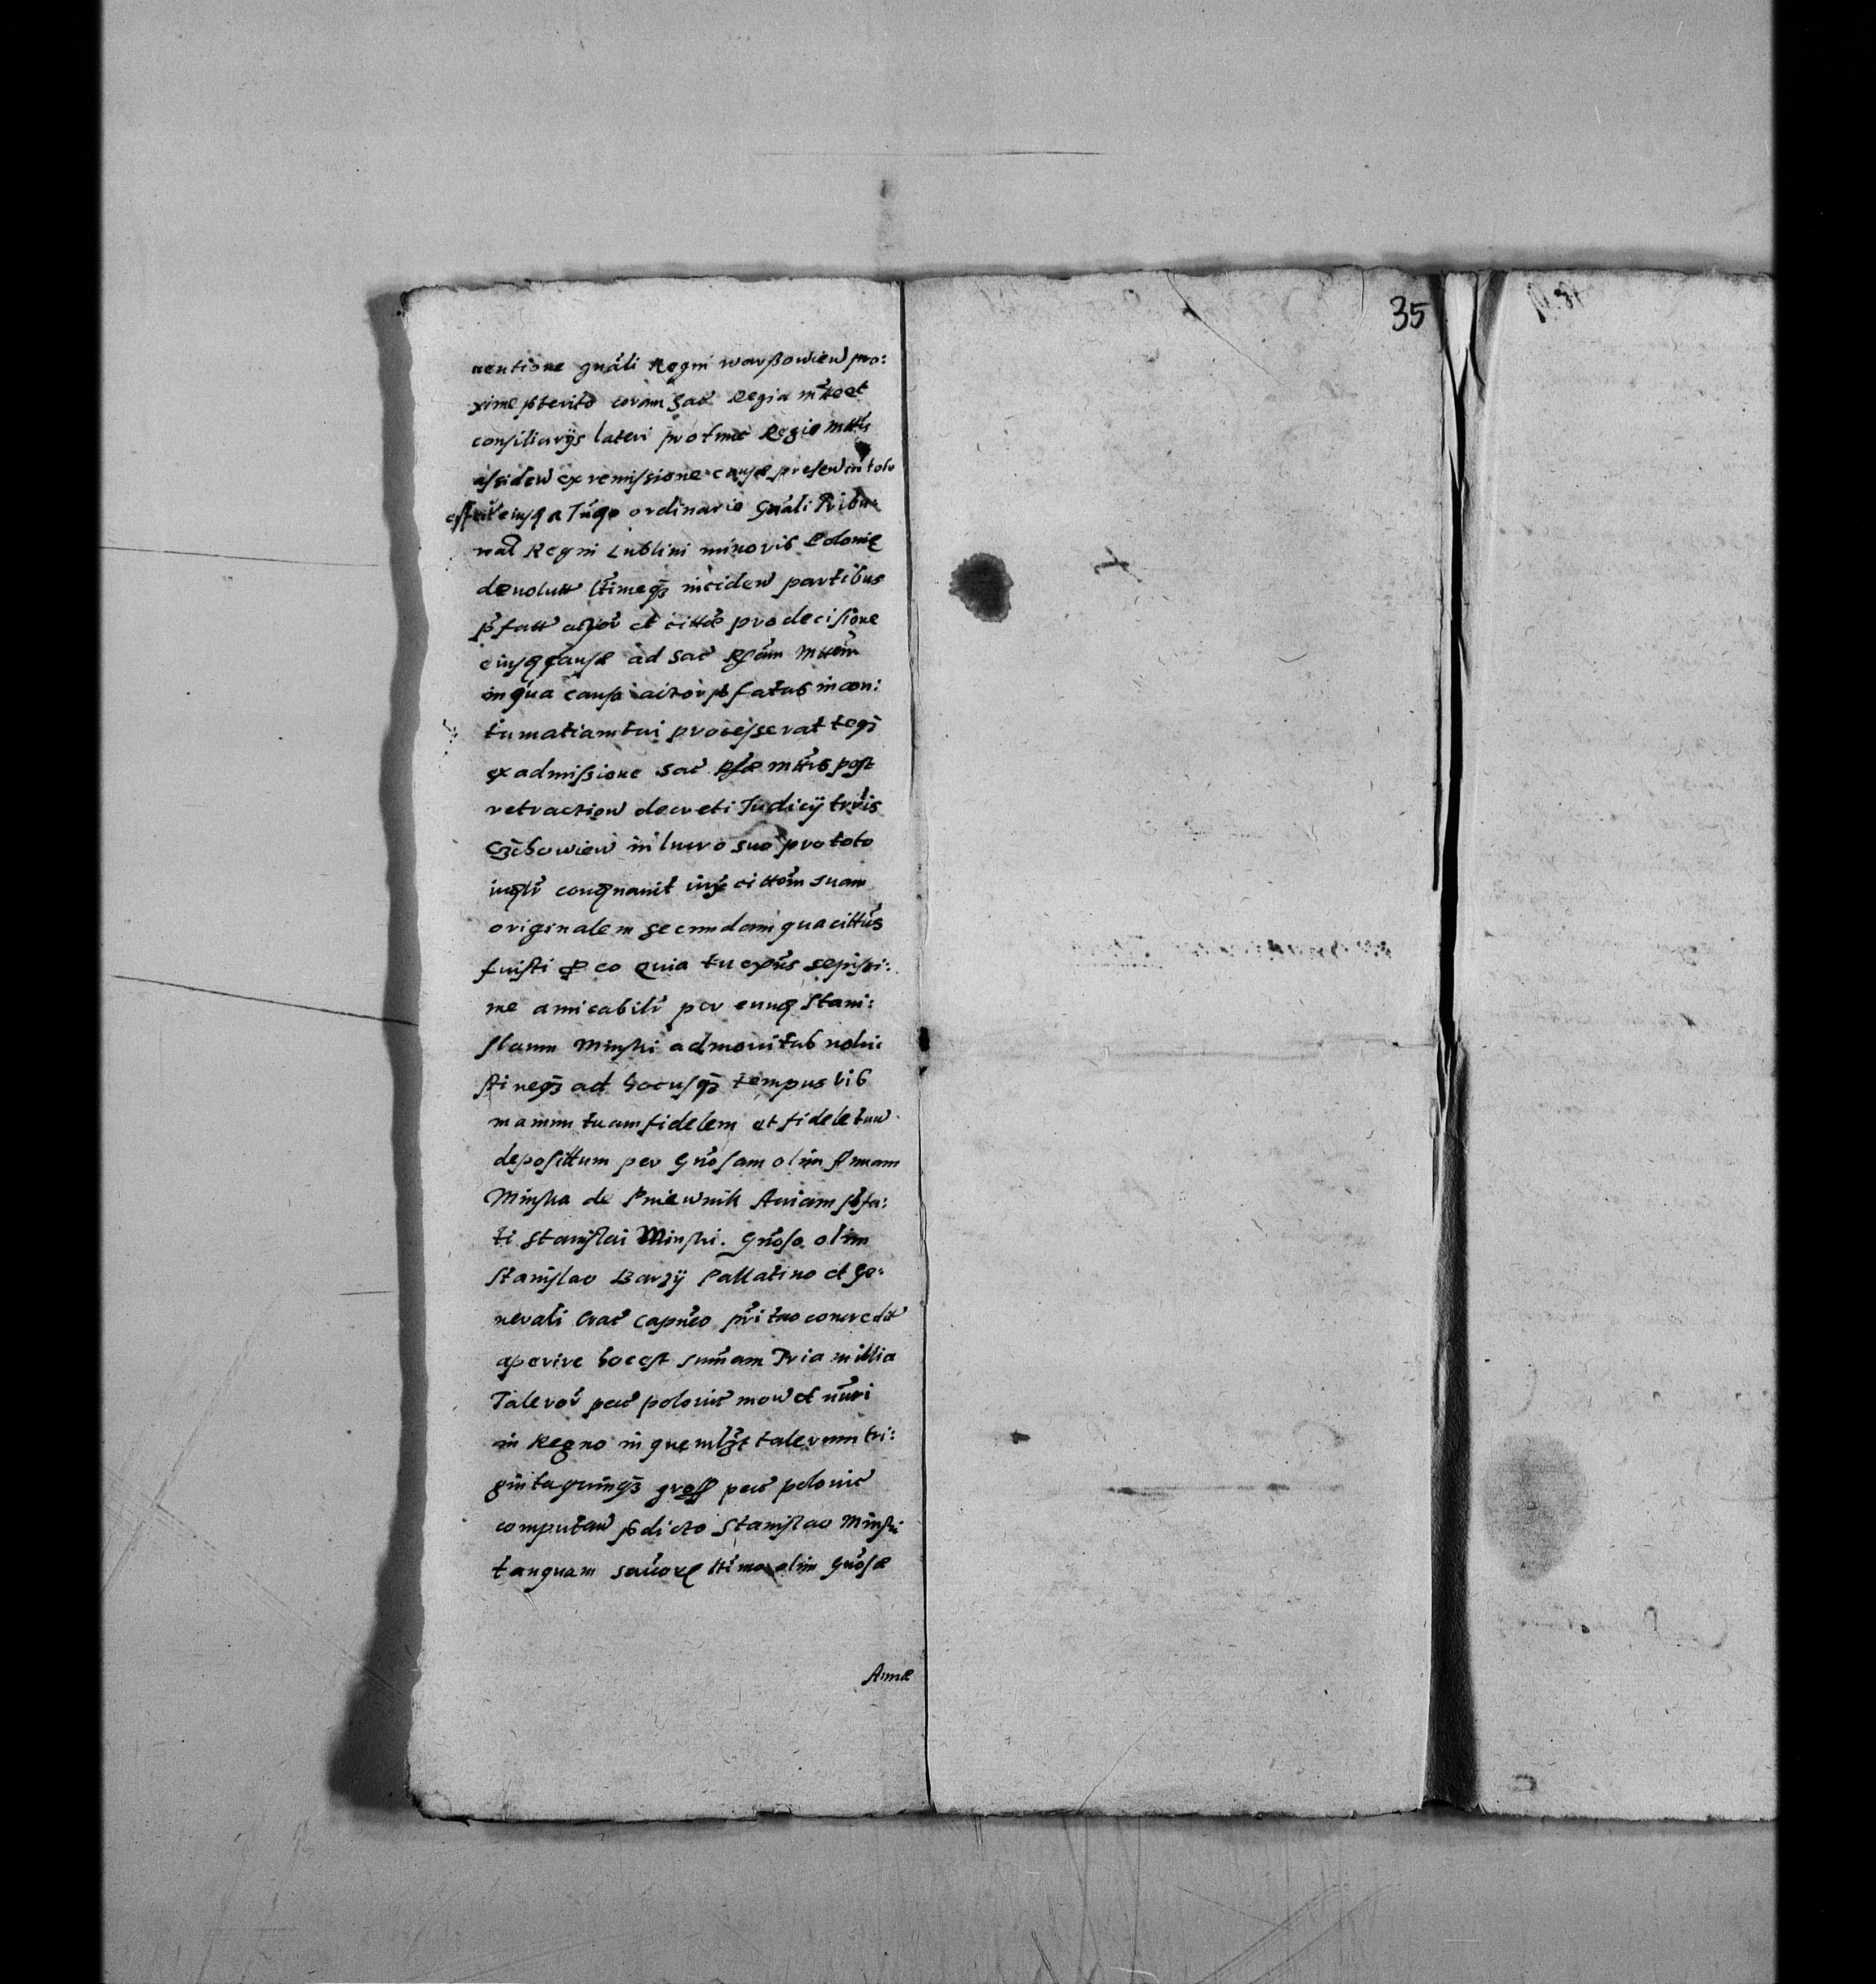 35
uentione gnali Regni warßowien pro:
xime pterito coram Sac Regia mtte et
consiliarijs lateri protunc Regio mttis
assiden ex remissione causæ presen in toto
eiusq a Iugo ordinario Gnali Tribu:
nal Regni Lublini minoris Polonię
deuolutt ltimeqz inciden partibus
pfatt actor et cittæ pro decisione
eiusq causæ ad Sac Rgiam Mttem
in qua causa actor pfatus in con:
tumatiam tui processerat teqz
ex admissione Sac Rgiæ mttis post
retraction decreti Iudicij trris
Czchowien in lucro suo pro toto
iuxta cittom suam
originalem secundam qua cittus
fuisti eo quia tu sepissi:
me amicabilr per eunq Stani:
slaum Minski admonitus nolui
sti neqz ad hocusqz tempus vis
manum tuam fidelem et fidele tuu
deposittum per Gnosam olim Annam
Minska de Pniewnik Auiam pfa:
ti Stanislai Minski. Gnoso olim
Stanislao Barzij Pallatino et Ge:
nerali Crac Capneo pri tuo concredit
aperire hoc est summam Tria millia
Taleror pec polonic mon et nuri
in Regno in quemlzt talerum tri:
gintaquinqz gross pec polonic
computan pdicto Stanislao Minski
tanquam olim Gnosæ
Annæ